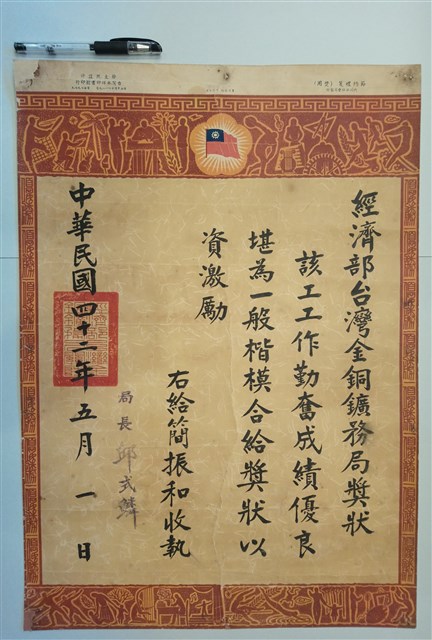 經濟部台灣金銅鑛務局獎狀
該工工作勤奮成績優良
堪為一般楷模合給獎狀以
資激勵
右給簡振和收執
局長
中華民國四十二年五月一日